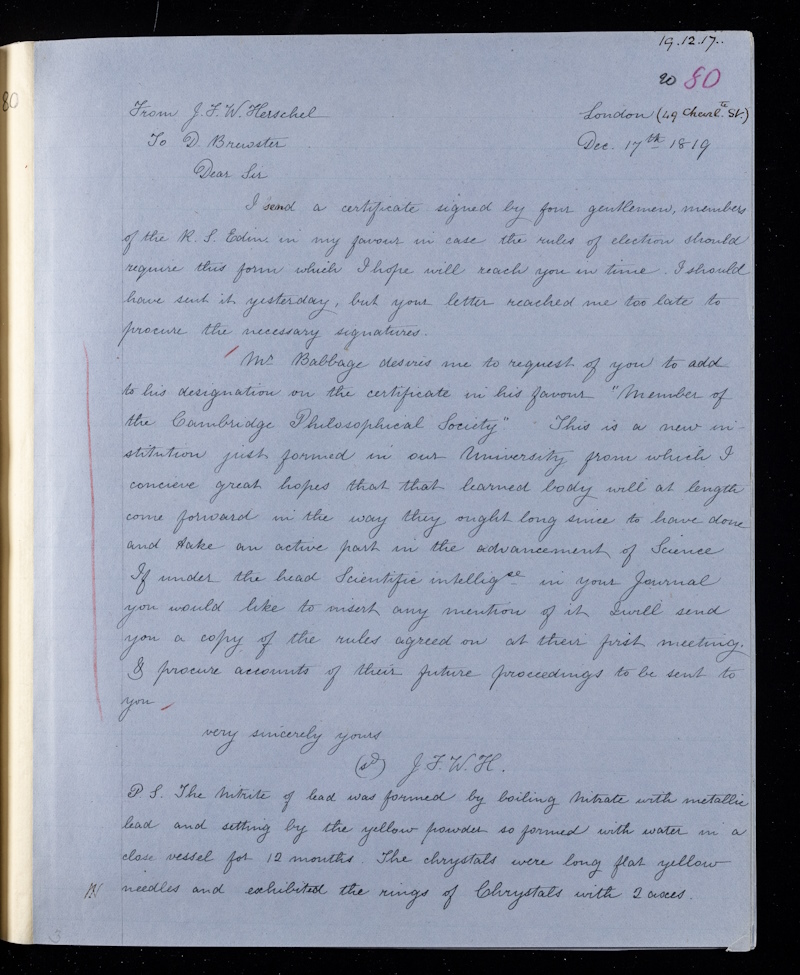 19.12.17.
20 80
80
From J. F. W. Herschel London (49 Charl.te St.)
To D. Brewster Dec. 17th 1819
Dear Sir
I send a certificate signed by four gentlemen, members
of the R. S. Edin. in my favour in case the rules of election should
require this form which I hope will reach you in time. I should
have sent it yesterday, but your letter reached me too late to
procure the necessary signatures.
Mr Babbage desires me to request of you to add
to his designation on the certificate in his favour "Member of
the Cambridge Philosophical Society" This is a new in-
stitution just formed in our University from which I
concieve great hopes that that learned body will at length
come forward in the way they ought long since to have done
and take an active part in the advancement of Science
If under the head Scientific intelligce in your Journal
you would like to insert any mention of it I will send
you a copy of the rules agreed on at their first meeting.
& procure accounts of their future proceedings to be sent to
you
very sincerely yours
(sd) J. F. W. H.
P S. The Nitrite of lead was formed by boiling Nitrate with metallic
lead and setting by the yellow powder so formed with water in a
close vessel for 12 months. The chrystals were long flat yellow
needles and exhibited the rings of Chrystals with 2 axes.